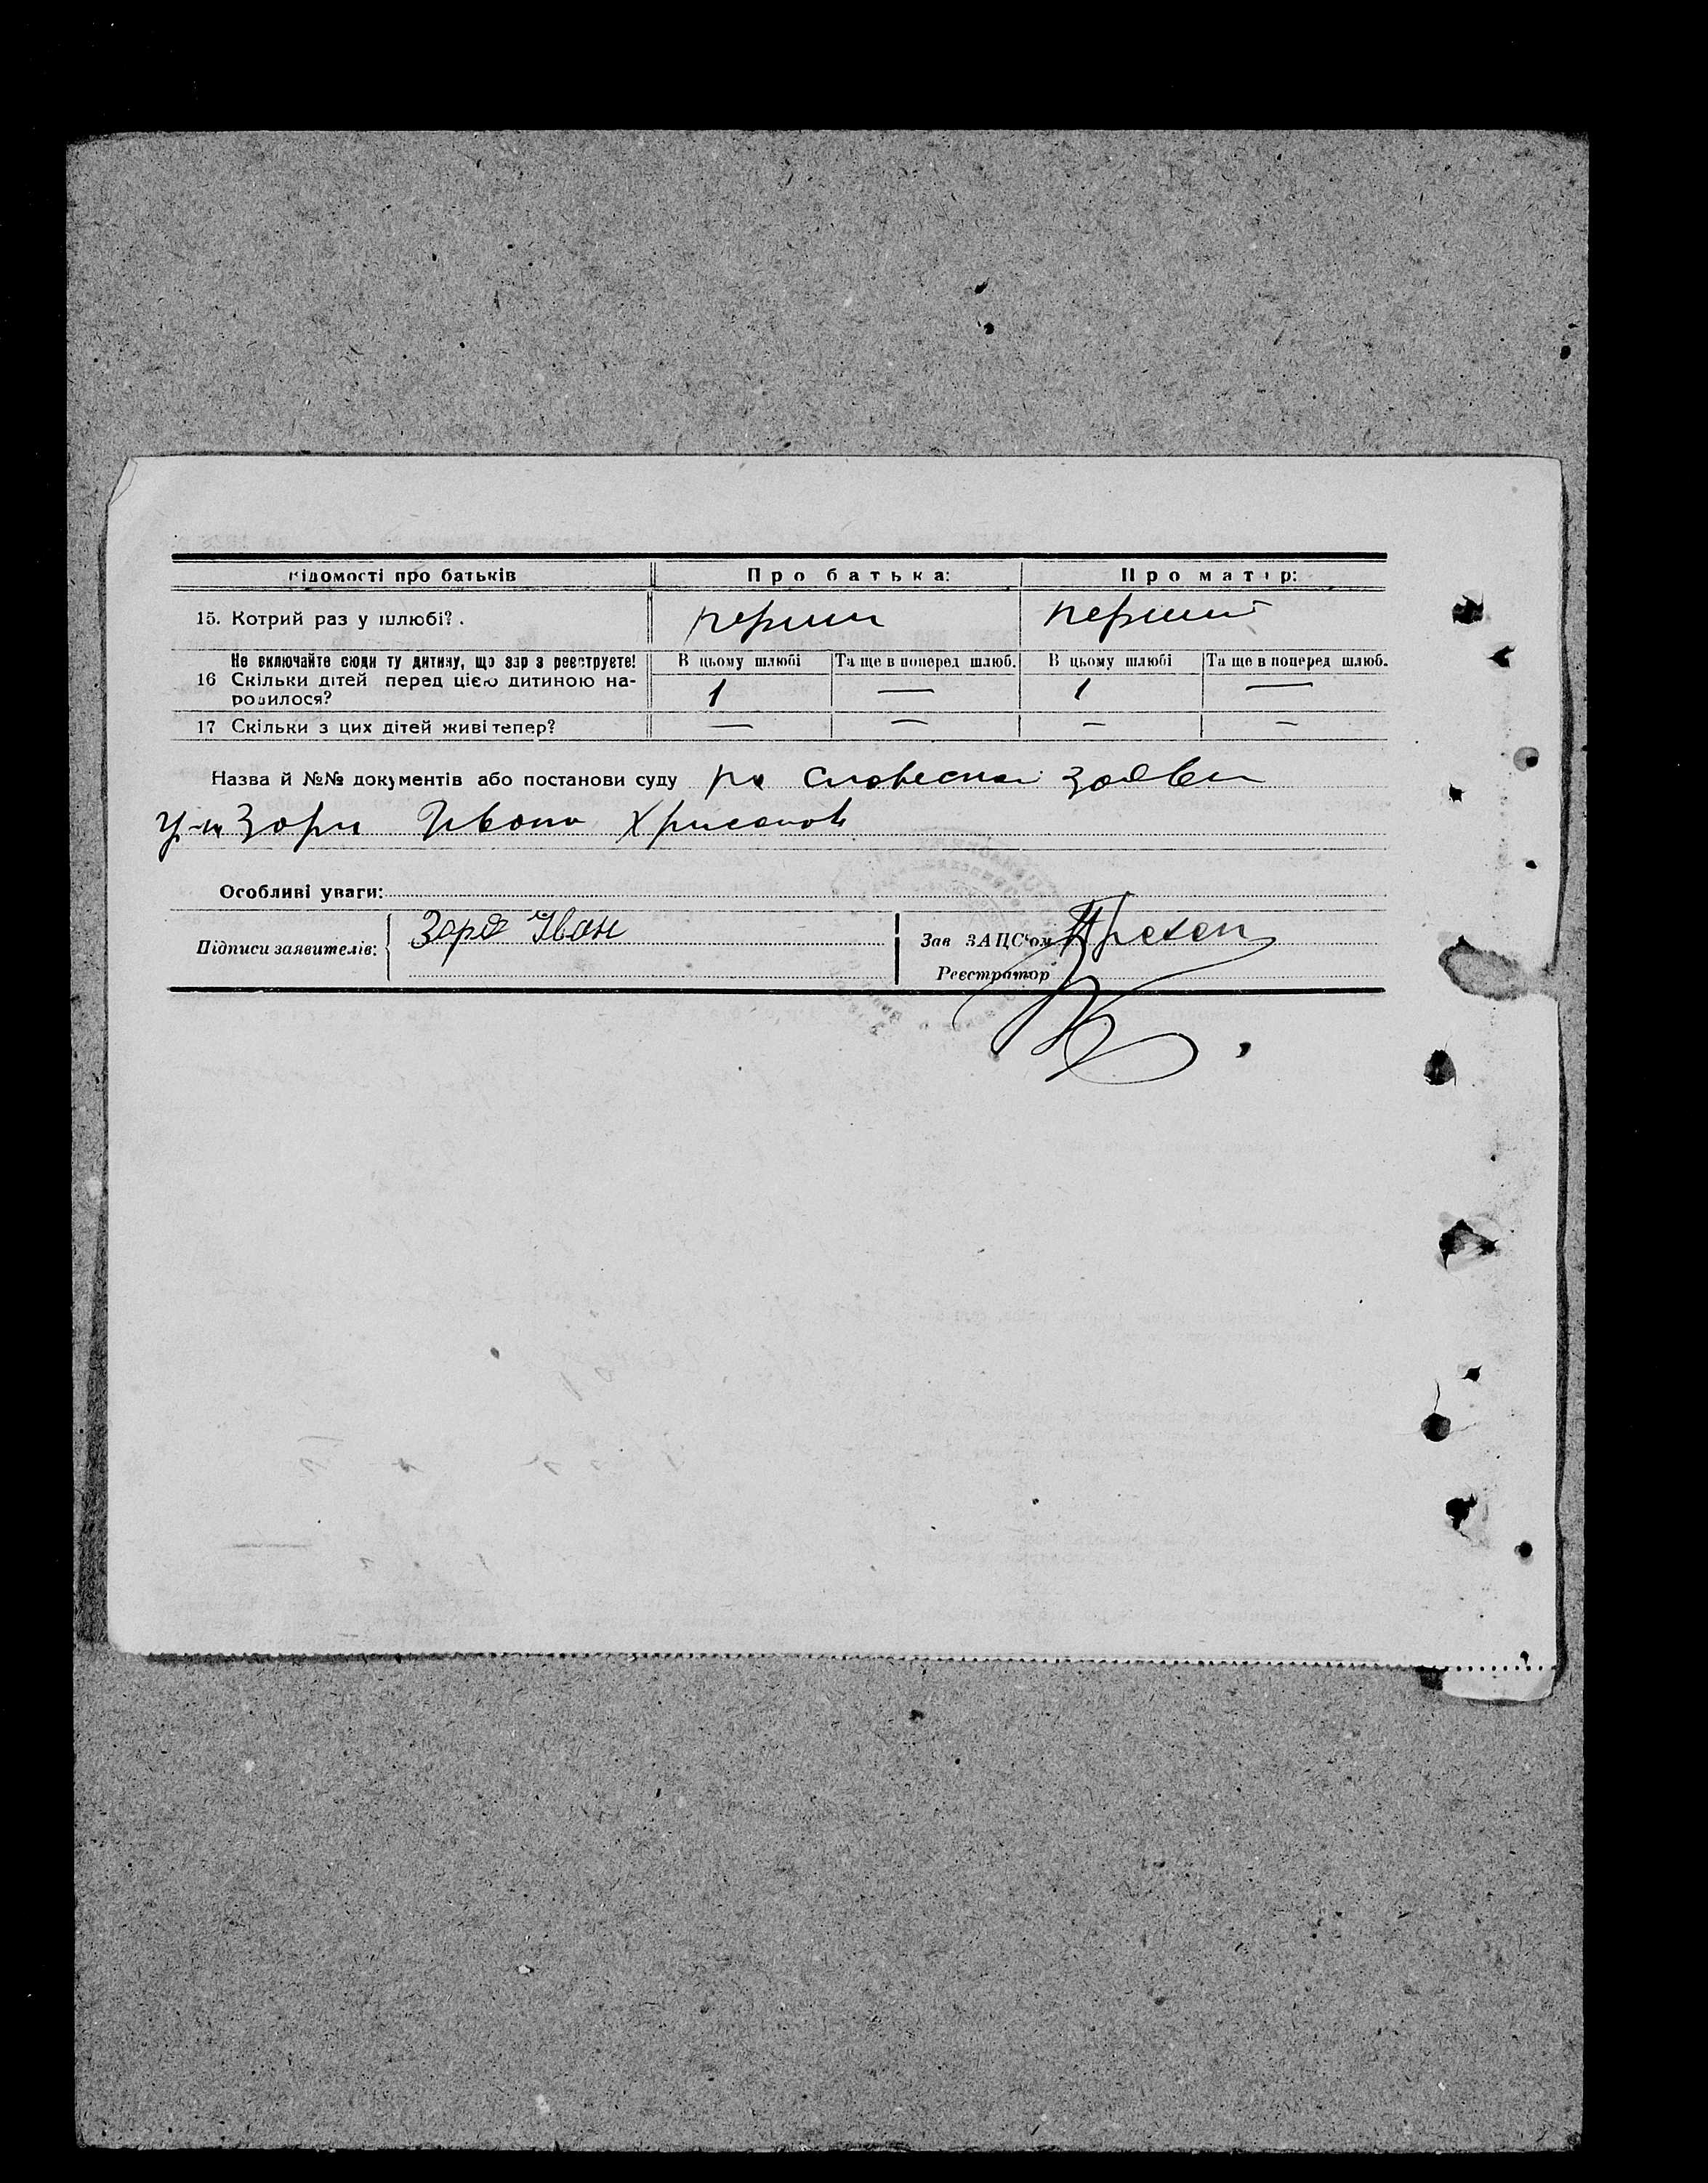 Відомості про батьків Про батька: Про матір:
15. Котрий раз у шлюбі? . перший перший
Не включайте сюди ту дитину, що зараз реєструєте! В цьому шлюбі Та ще в поперед шлюб. В цьому шлюбі Та ще в поперед шлюб.
16 Скільки дітей перед цією дитиною на- 1 — 1 —
родилося?
17 Скільки з цих дітей живі тепер? — — — —
Назва й №№ документів або постанови суду по словесной заяви
гр-н Зори Ивана Хрисанов
Особливі уваги:
Підписи заявителів: Зоря Іван Зав ЗАЦС'ом
Реєстратор